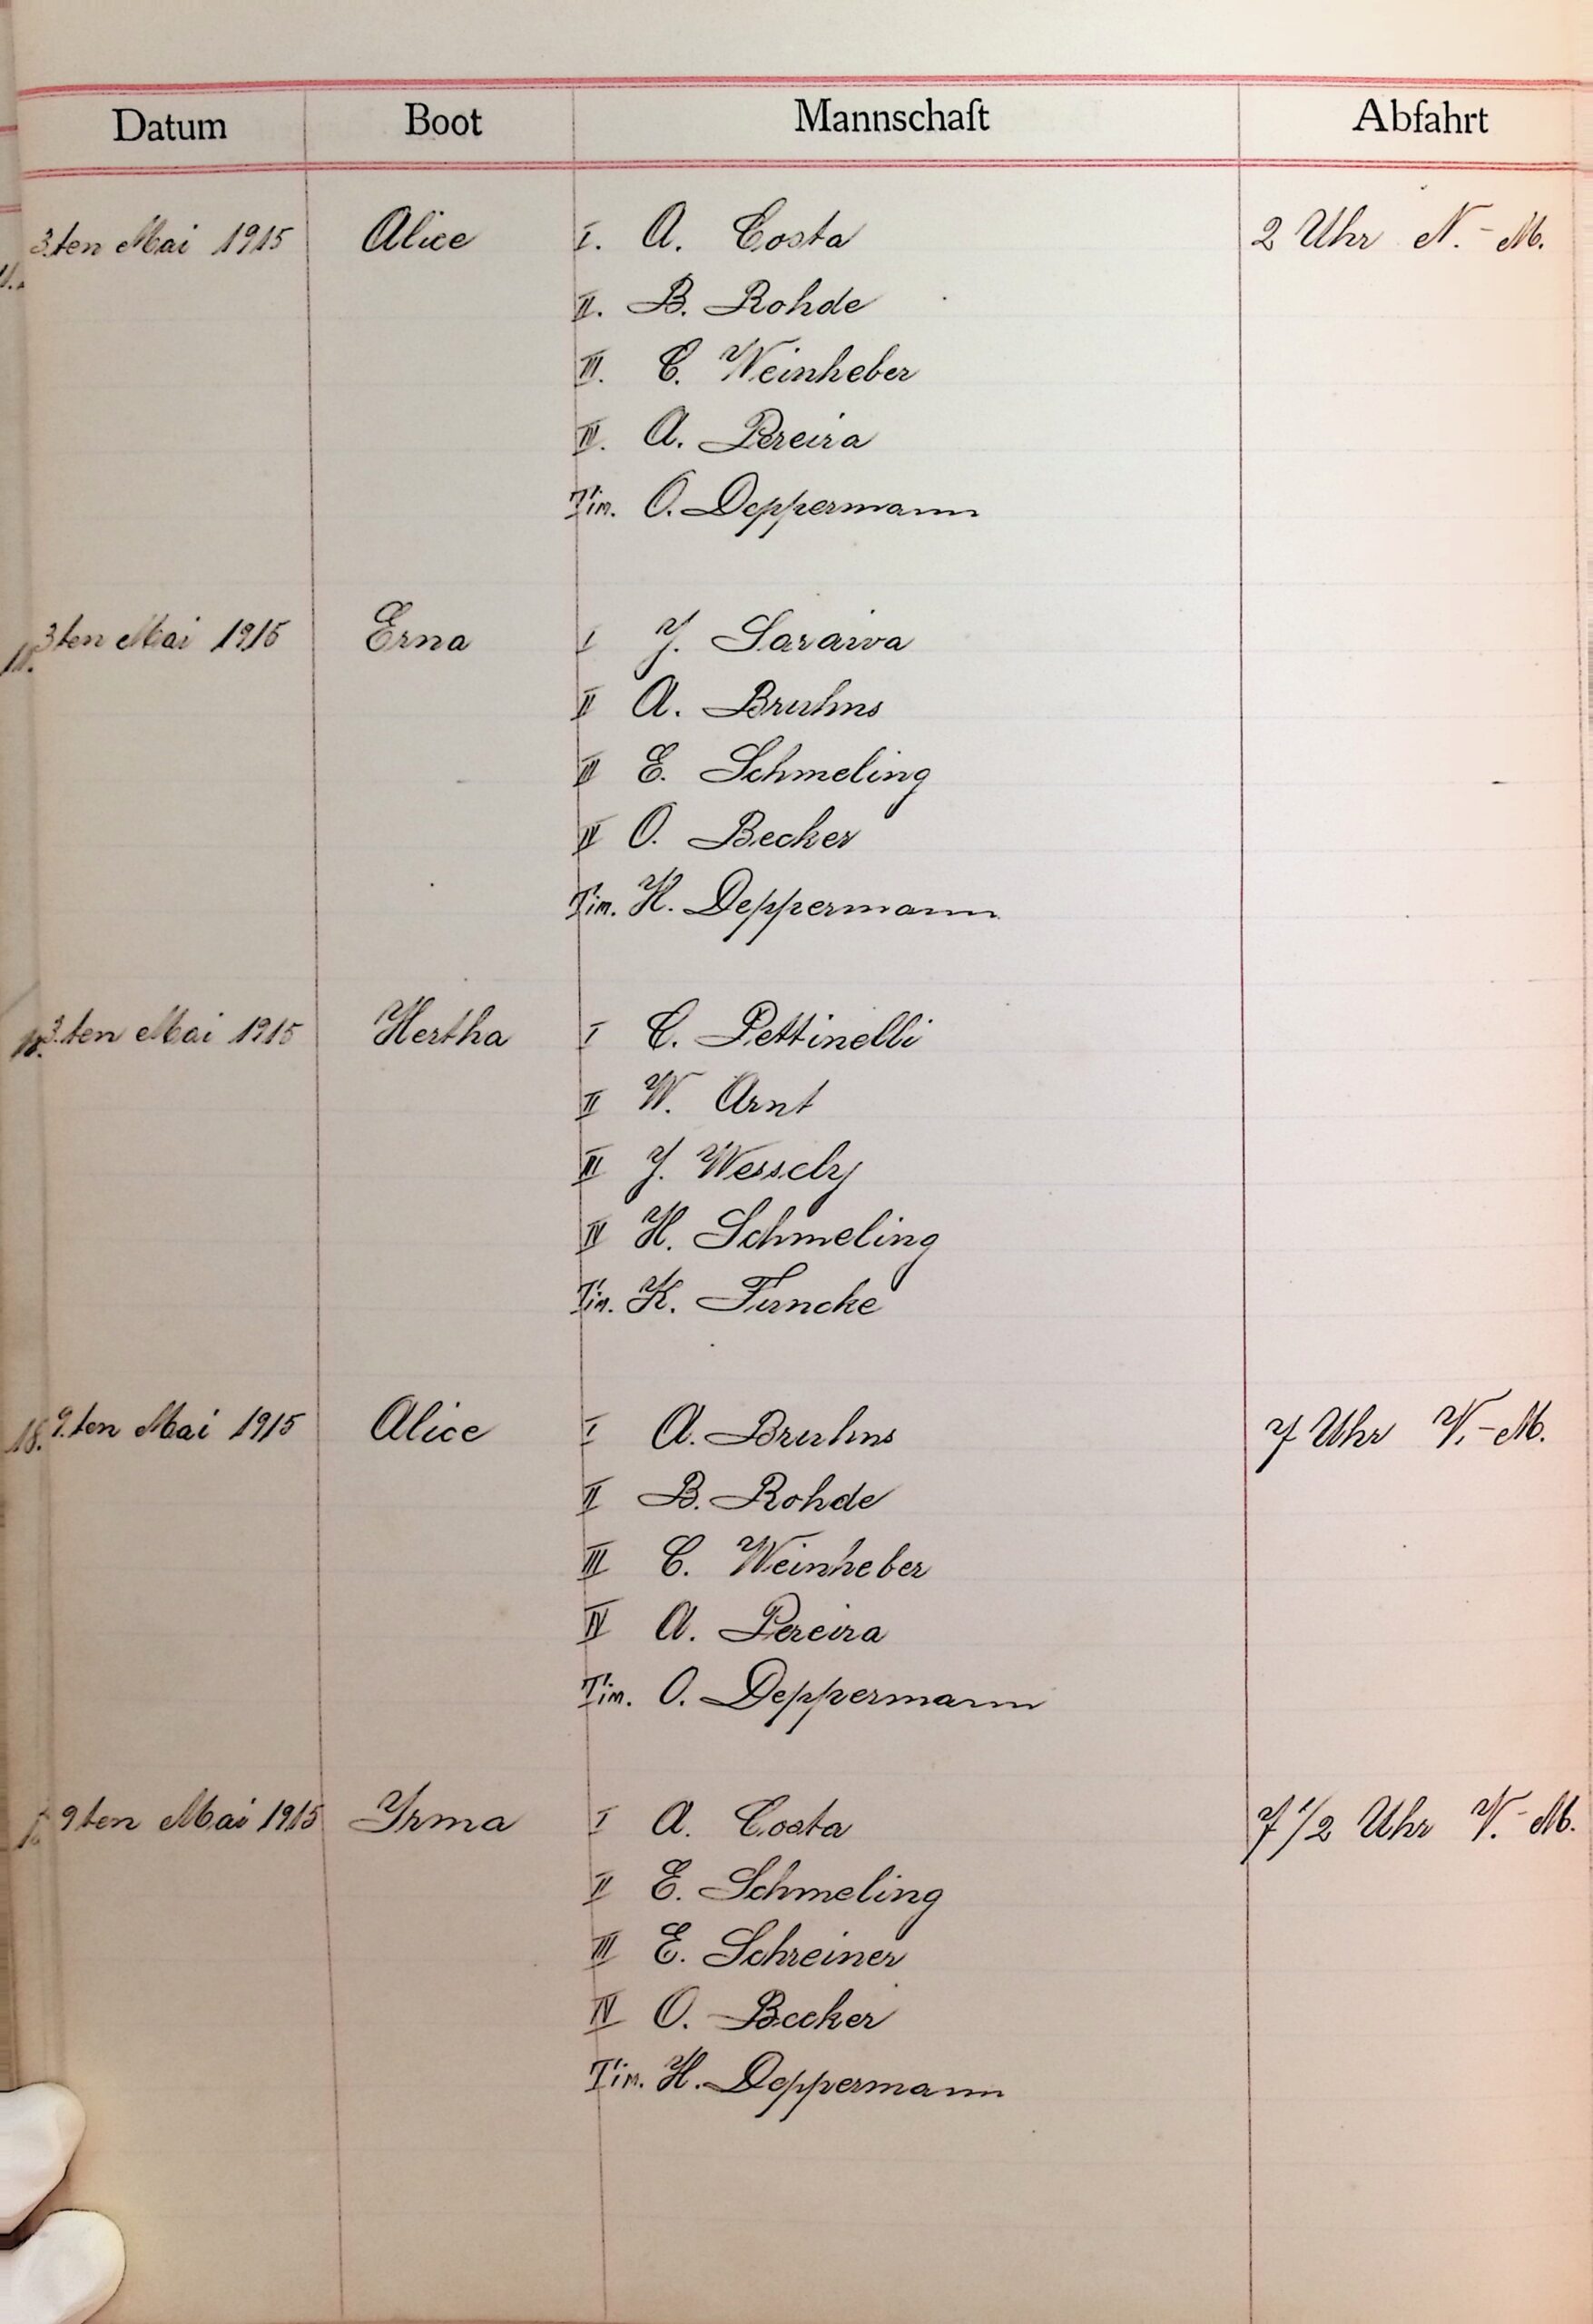 Datum Boot Mannschaft Abfahrt
3.ten Mai 1915 Alice I. A. Costa 2 Uhr N.-M.
II. B. Rohde
III. C. Weinheber
IV. A. Pereira
Tim. O. Deppermann
3ten Mai 1915 Erna I J. Saraiva
II A. Bruhns
III E. Schmeling
IV O. Becker
Tim. H. Deppermann
3.ten Mai 1915 Hertha I C. Pettinelli
II W. Arnt
III J. Wessely
IV H. Schmeling
Tim. K. Funcke
9.ten Mai 1915 Alice I A. Bruhns 7 Uhr V.-M.
II B. Rohde
III C. Weinheber
IV A. Pereira
Tim. O. Deppermann
9ten Mai 1915 Yrma I A. Costa 7 1/2 Uhr V.-M.
II E. Schmeling
III E. Schreiner
IV O. Becker
Tim. H. Deppermann